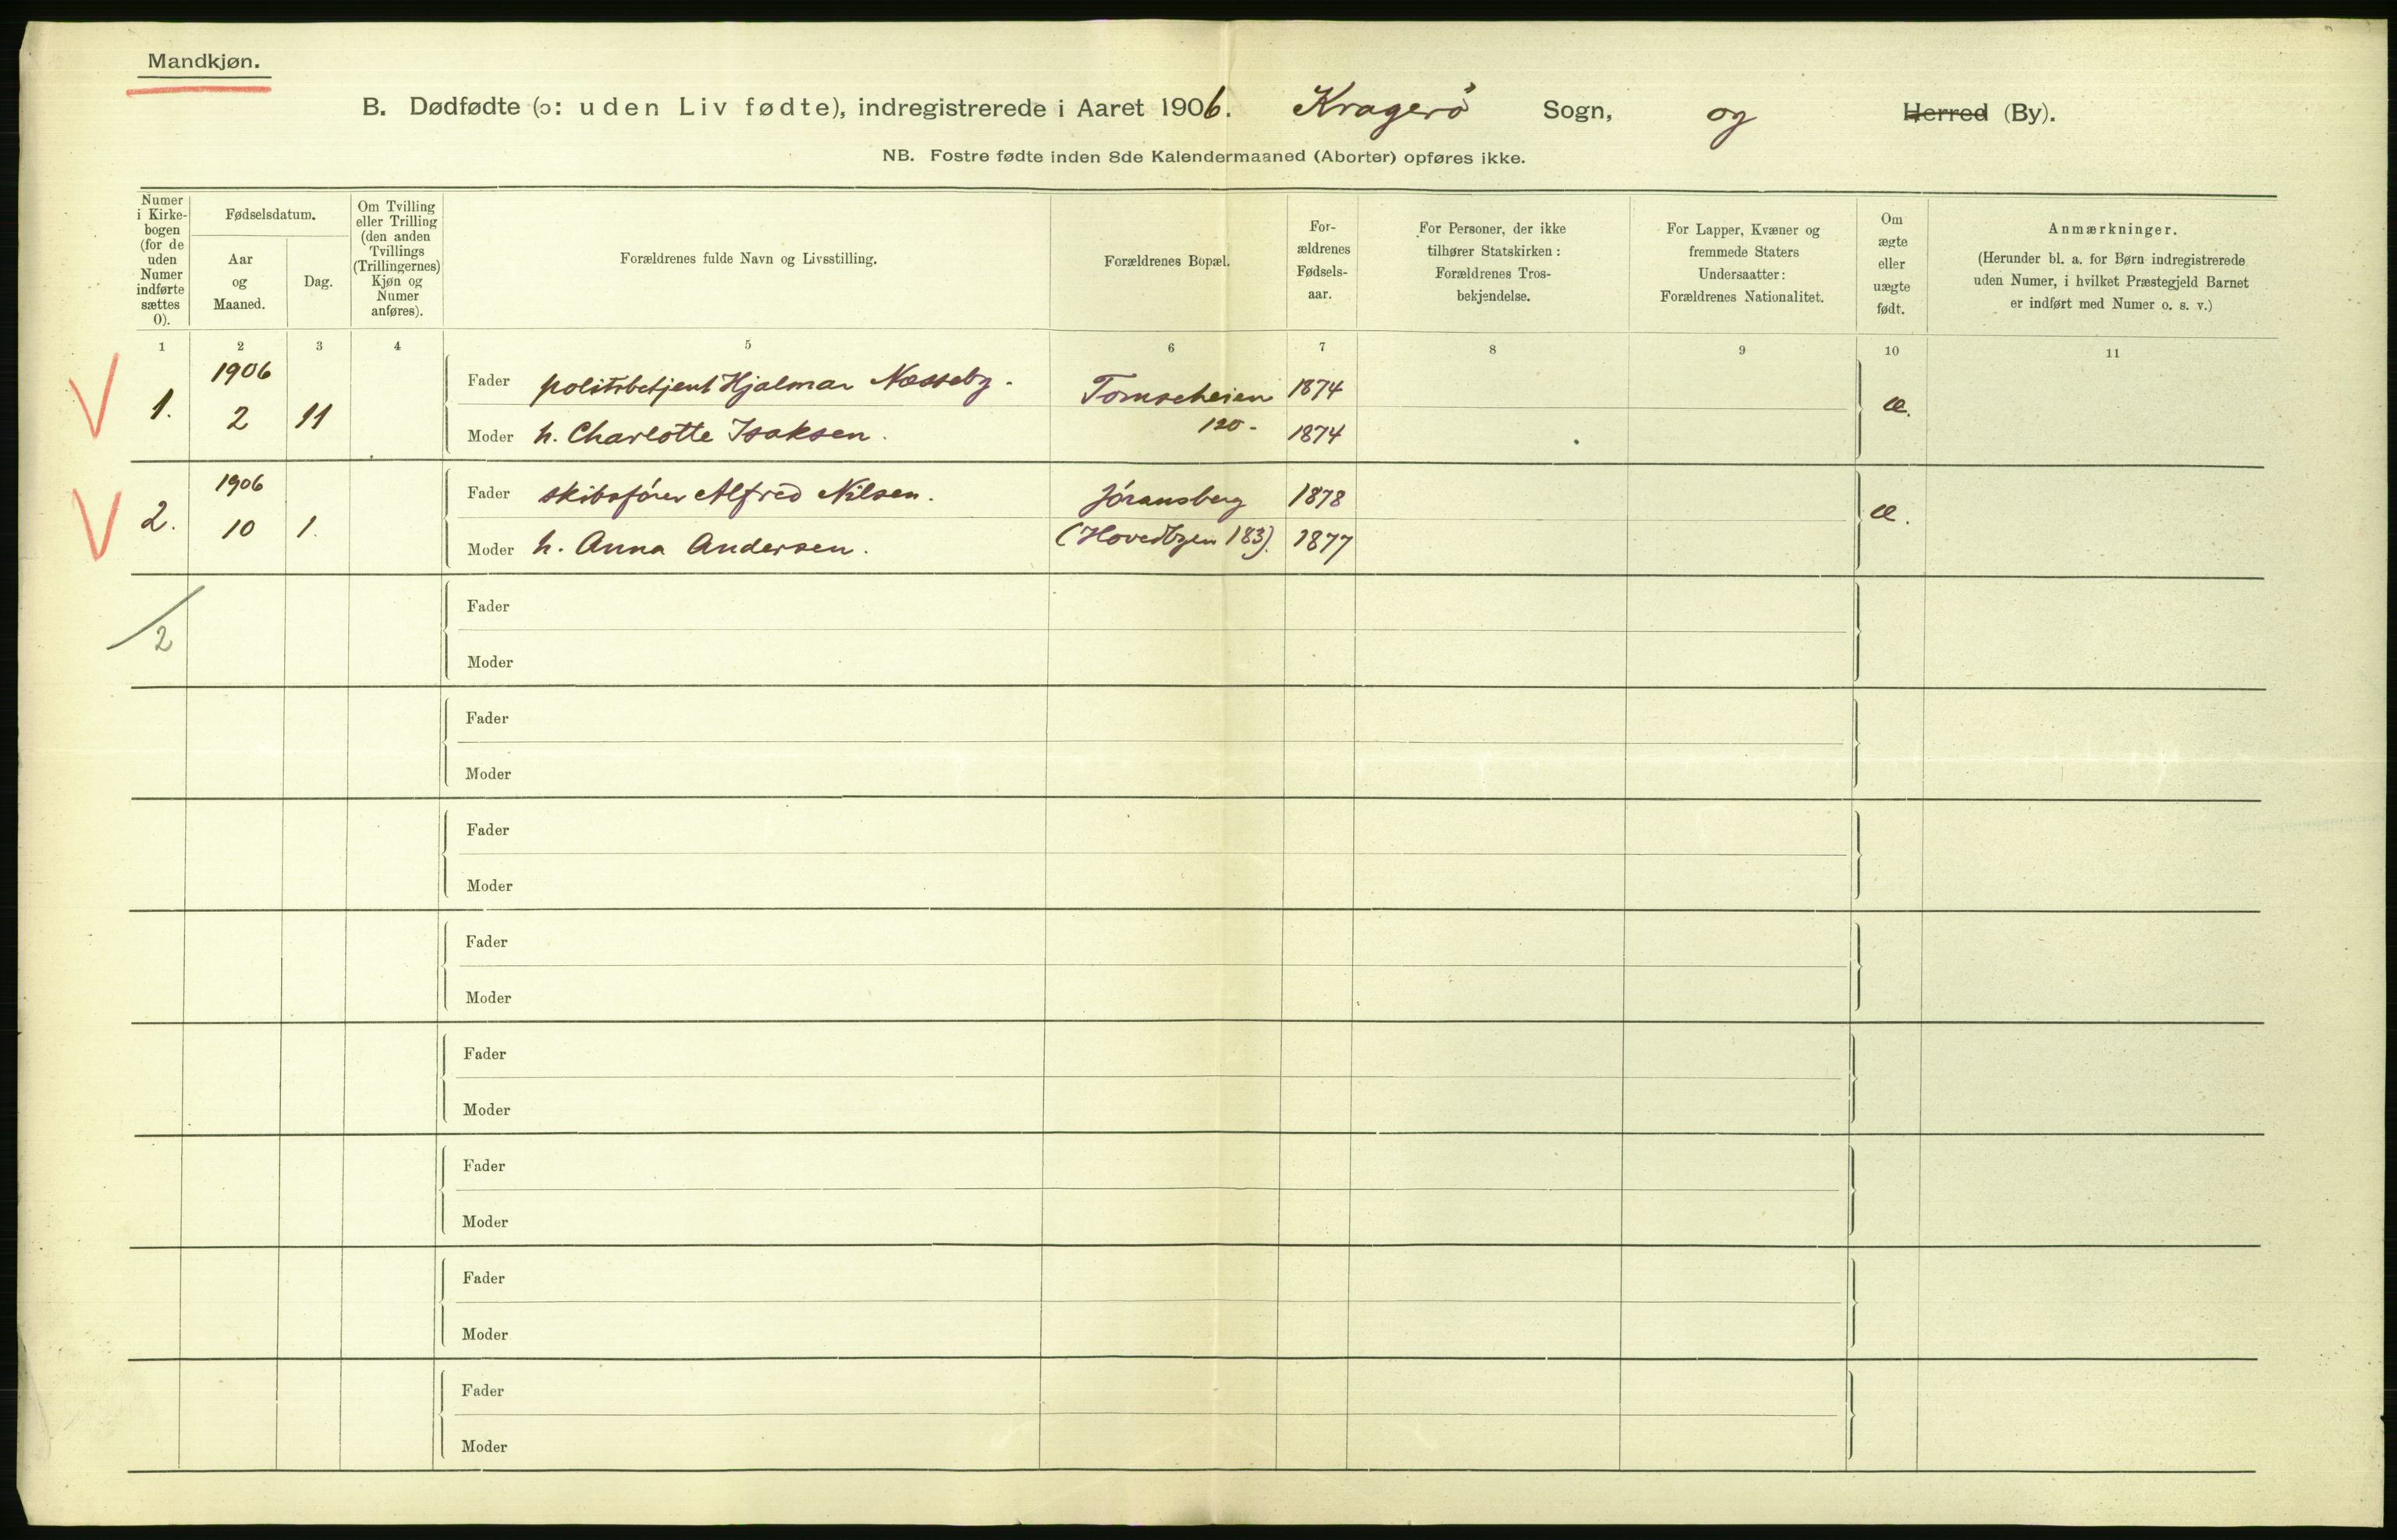 Mandkjøn.
B. Dødfødte (ɔ: uden Liv fødte), indregistrerede i Aaret 1906. Kragerö Sogn, og Herred (By).
NB. Fostre fødte inden 8de Kalendermaaned (Aborter) opføres ikke.
Numer i Kirke-bogen (for de uden Numer indførte sættes 0).
Fødselsdatum.
Aar og Maaned.
Dag.
Om Tvilling eller Trilling (den anden Tvillings (Trillingernes) Kjøn og Numer anføres).
Forældrenes fulde Navn og Livsstilling.
Forældrenes Bopæl.
For-ældrenes Fødsels-aar.
For Personer, der ikke tilhører Statskirken: Forældrenes Tros-bekjendelse.
For Lapper, Kvæner og fremmede Staters Undersaatter: Forældrenes Nationalitet.
Om ægte eller uægte født.
Anmærkninger.
(Herunder bl. a. for Børn indregistrerede uden Numer, i hvilket Præstegjeld Barnet er indført med Numer o. s. v.)
1 2 3 4 5 6 7 8 9 10 11
1906
Fader politibetjent Hjalmar Næsseby. 1874
1. 2 11 æ.
Moder h. Charlotte Isaksen. 120. 1874
1906
Fader skibsfører Alfred Nilsen. Jøransberg 1878
2. 10 1. æ.
Moder h. Anna Andersen. (Hovedbyen 183). 1877
Fader
2
Moder
Fader
Moder
Fader
Moder
Fader
Moder
Fader
Moder
Fader
Moder
Fader
Moder
Fader
Moder